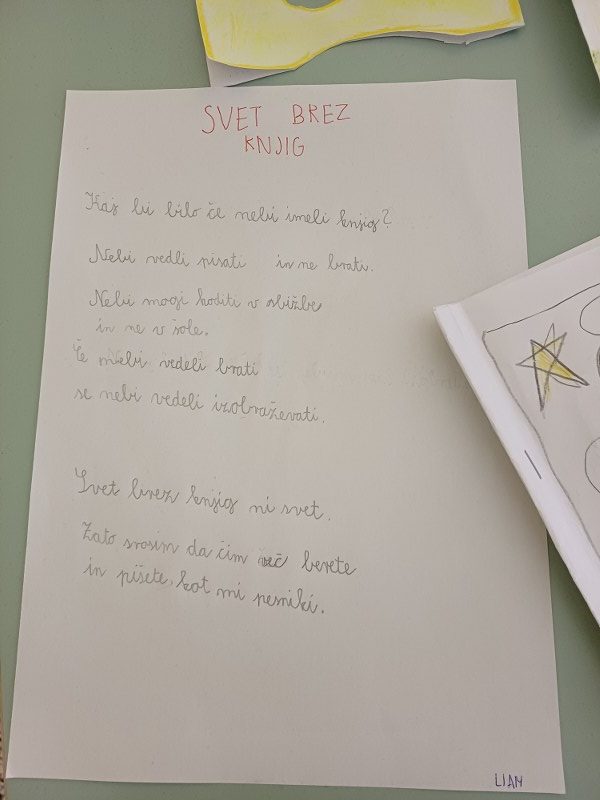 SVET BREZ
KNJIG
Kaj bi bilo če nebi imeli knjig?
Nebi vedli pisati in ne brati.
Nebi mogi hoditi v službe
in ne v šole.
Če nebi vedeli brati
se nebi vedeli izobraževati.
Svet brez knjig ni svet.
Zato srosim da čim več berete
in pišete, kot mi pesniki.
LIAN